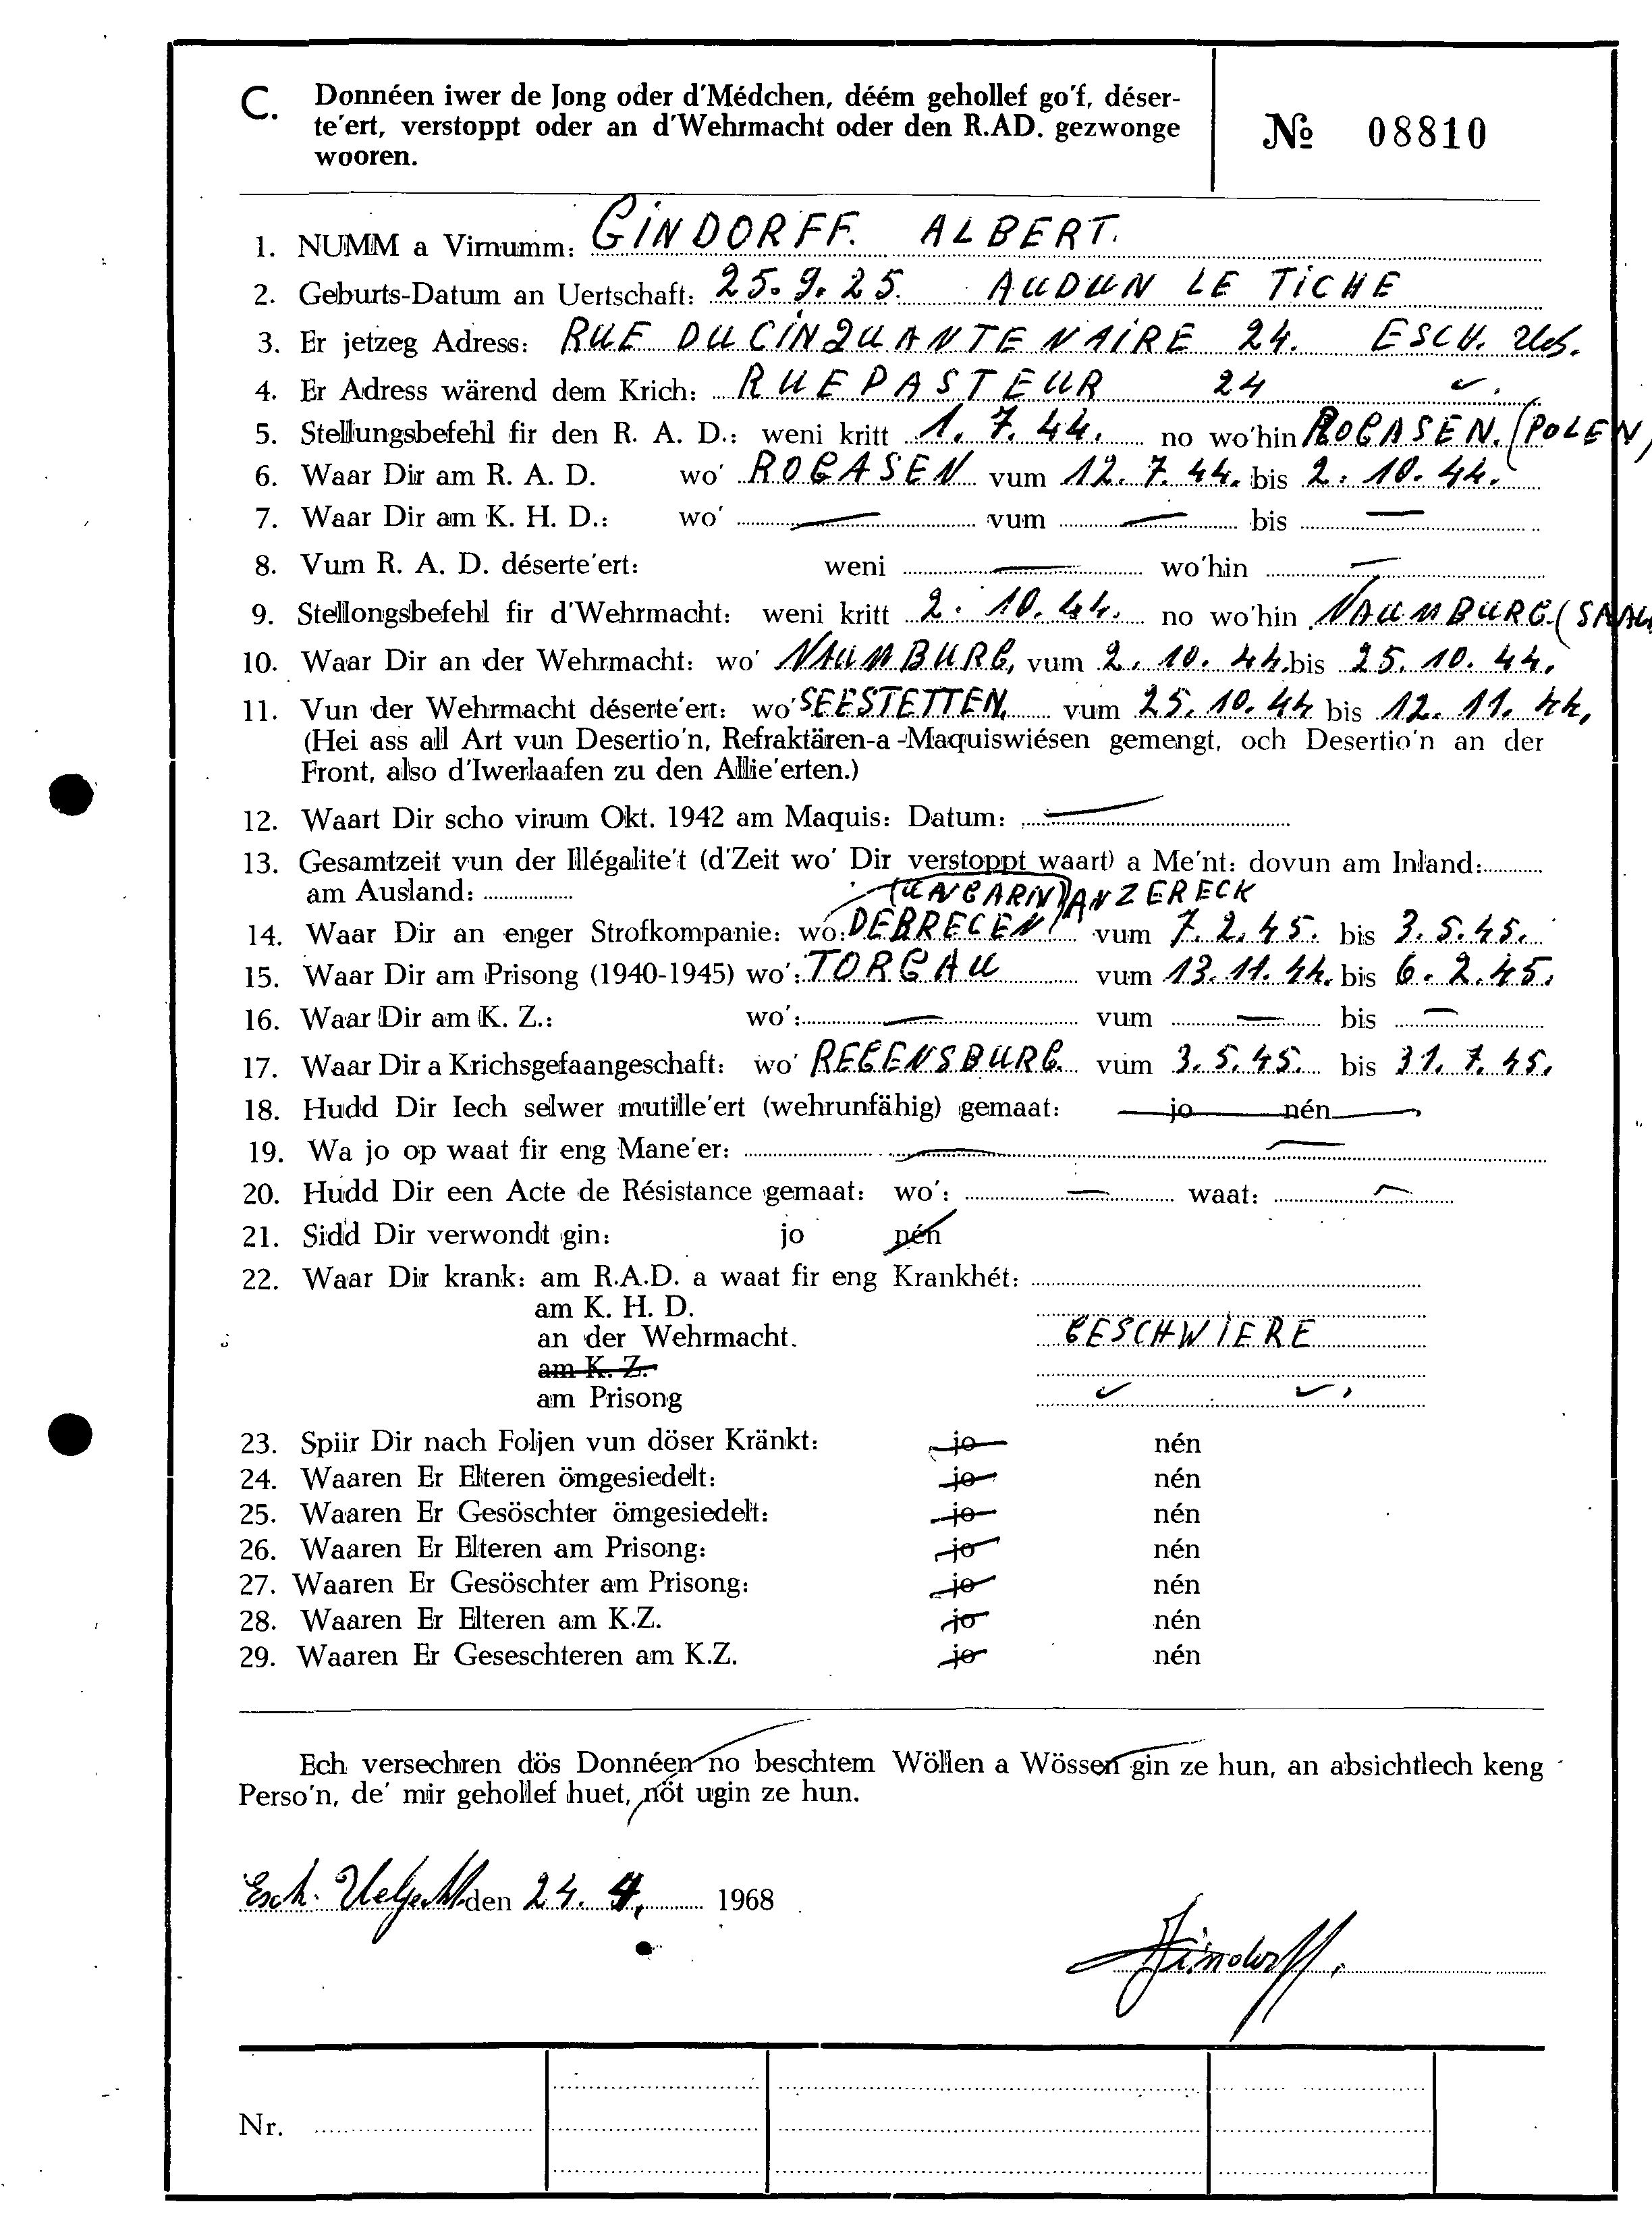 C. Donnéen iwer de Jong oder d'Médchen, déém gehollef go'f, déser-
te'ert, verstoppt oder an d'Wehrmacht oder den R.AD. gezwonge
wooren.
№ 08810
1. NUMM a Virnumm: GINDORFF. ALBERT.
2. Geburts-Datum an Uertschaft: 25.9.25. AUDUN LE TICHE
3. Er jetzeg Adress: RUE DU CINQUANTENAIRE 24. ESCH. Uelz.
4. Er Adress wärend dem Krich: RUE PASTEUR 24
5. Stellungsbefehl fir den R. A. D.: weni kritt 1. 7. 44. no wo'hin ROGASEN. (POLEN)
6. Waar Dir am R. A. D. wo' ROGASEN vum 12. 7. 44. bis 2. 10. 44.
7. Waar Dir am K. H. D.: wo' — vum — bis —
8. Vum R. A. D. déserte'ert: weni — wo'hin —
9. Stellongsbefehl fir d'Wehrmacht: weni kritt 2. 10. 44. no wo'hin NAUMBURG. (SAAL
10. Waar Dir an der Wehrmacht: wo' NAUMBURG, vum 2. 10. 44. bis 25. 10. 44.
11. Vun der Wehrmacht déserte'ert: wo' SEESTETTEN, vum 25. 10. 44 bis 12. 11. 44.
(Hei ass all Art vun Desertio'n, Refraktären-a -Maquiswiésen gemengt, och Desertio'n an der
Front, also d'Iwerlaafen zu den Allie'erten.)
12. Waart Dir scho virum Okt. 1942 am Maquis: Datum: —
13. Gesamtzeit vun der Illégalite't (d'Zeit wo' Dir verstoppt waart) a Me'nt: dovun am Inland:
am Ausland:
(UNGARN) AN ZERECK
14. Waar Dir an enger Strofkompanie: wo: DEBRECEN vum 7. 2. 45. bis 3. 5. 45.
15. Waar Dir am Prisong (1940-1945) wo': TORGAU vum 13. 11. 44. bis 6. 2. 45.
16. Waar Dir am K. Z.: wo': — vum — bis —
17. Waar Dir a Krichsgefaangeschaft: wo' REGENSBURG. vum 3. 5. 45. bis 31. 7. 45.
18. Hudd Dir Iech selwer mutille'ert (wehrunfähig) gemaat: jo nén
19. Wa jo op waat fir eng Mane'er: —
20. Hudd Dir een Acte de Résistance gemaat: wo': — waat: —
21. Sidd Dir verwondt gin: jo nén
22. Waar Dir krank: am R.A.D. a waat fir eng Krankhét:
am K. H. D.
an der Wehrmacht. GESCHWIERE
am K. Z.
am Prisong
23. Spiir Dir nach Foljen vun döser Kränkt: jo nén
24. Waaren Er Elteren ömgesiedelt: jo nén
25. Waaren Er Gesöschter ömgesiedelt: jo nén
26. Waaren Er Elteren am Prisong: jo nén
27. Waaren Er Gesöschter am Prisong: jo nén
28. Waaren Er Elteren am K.Z. jo nén
29. Waaren Er Geseschteren am K.Z. jo nén
Ech versechren dös Donnéen no beschtem Wöllen a Wössen gin ze hun, an absichtlech keng
Perso'n, de' mir gehollef huet, nöt ugin ze hun.
Esch. Uelzecht. den 24. 4. 1968
Gindorff.
Nr.